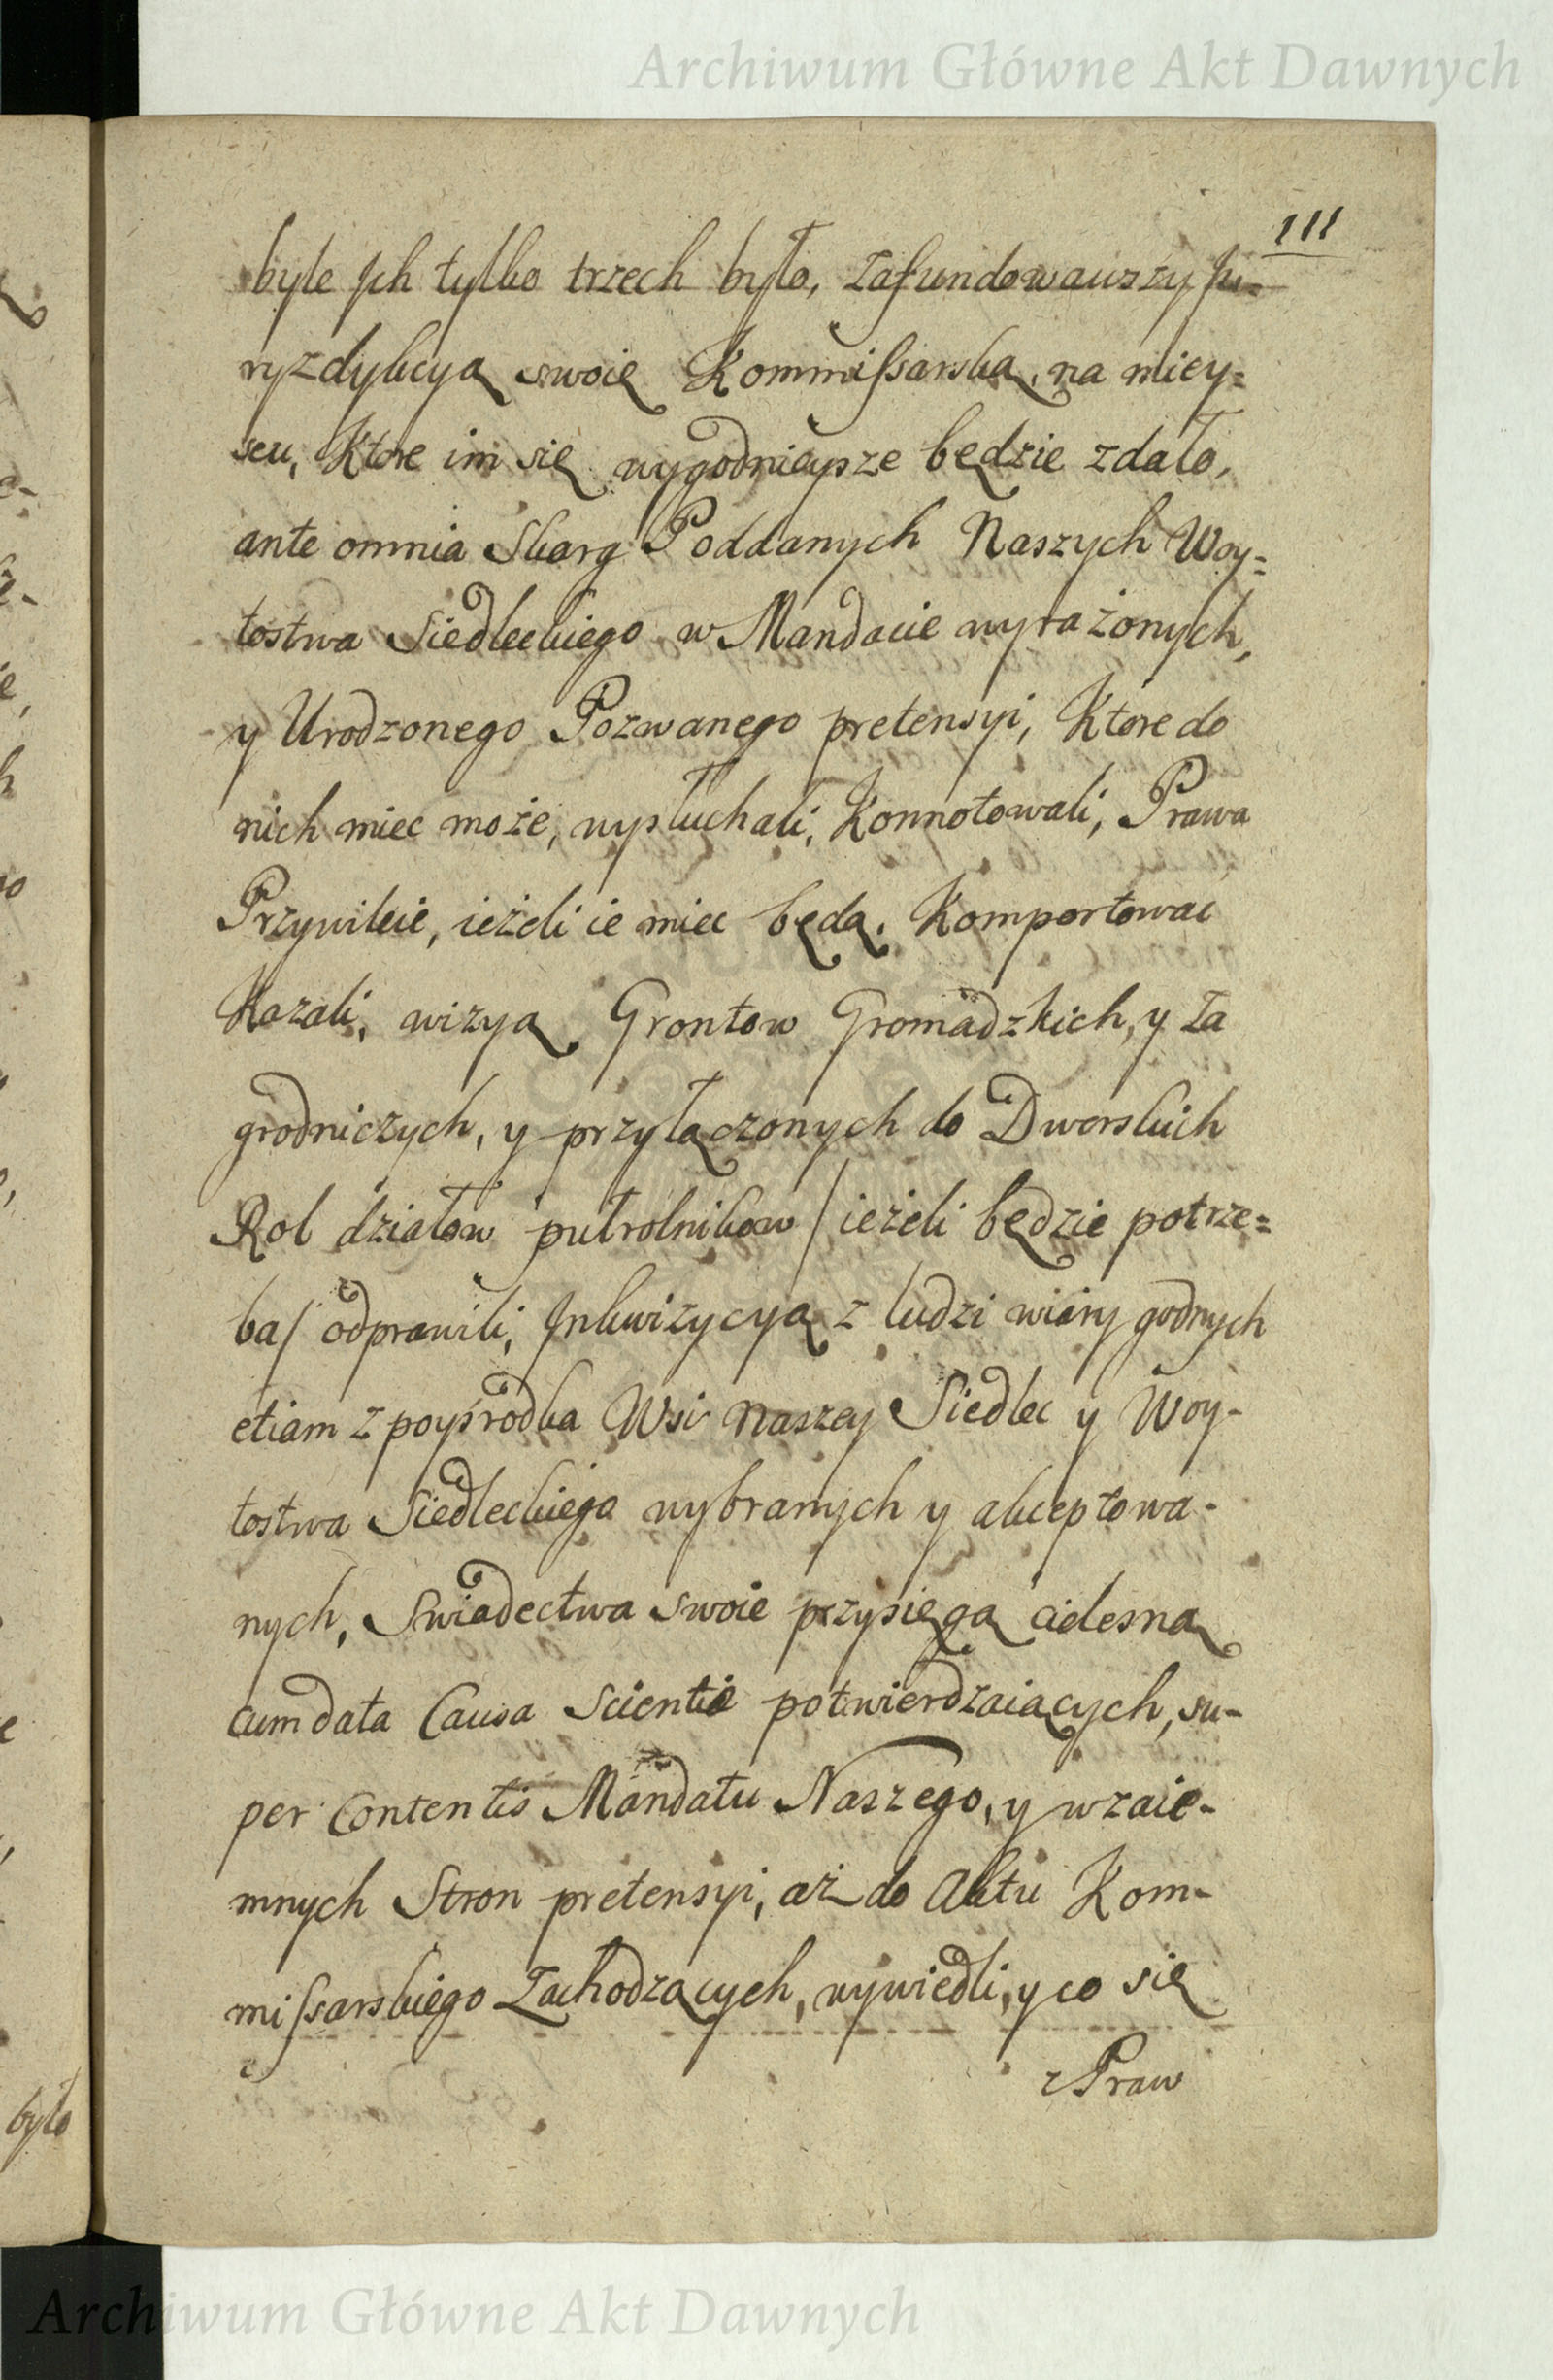 Archiwum Główne Akt Dawnych
111
byle Jch tylko trzech było, zafundowawszy Ju=
ryzdykcyą swoię Kommissarską, na miey=
scu, Ktore im się wygodnieysze będzie zdało,
ante omnia Skarg Poddanych Naszych Woy=
tostwa Siedleckiego w Mandacie wyrażonych,
y Urodzonego Pozwanego pretensyi, Ktore do
nich miec może, wysłuchali, Konnotowali, Prawa
Przywileie, ieżeli ie miec będą, Komportowac
Kazali, wizyą Grontow Gromadzkich, y Za
grodniczych, y przyłączonych do Dworskich
Rol działow pułrolnikow / ieżeli będzie potrze=
ba / odprawili, Jnkwizycyą z ludzi wiary godnych
etiam z poysrodka Wsi Naszey Siedlec y Woy-
tostwa Siedleckiego wybranych y akceptowa-
nych, Swiadectwa swoie przysięgą cielesną
cum data Causa Scientiæ potwierdzaiących, su-
per Contentis Mandatu Naszego, y wzaie-
mnych Stron pretensyi, aż do Aktu Kom-
missarskiego Zachodzących, wywiedli, y co się
z Praw
było
Archiwum Główne Akt Dawnych